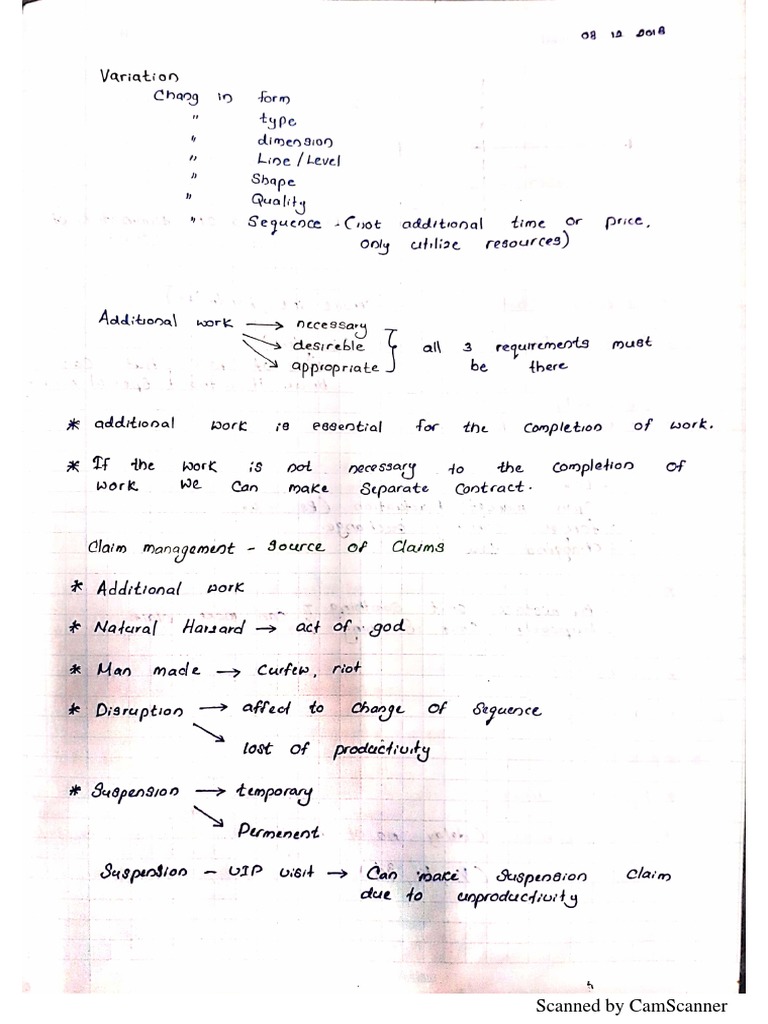 08 12 2018
Variation
Chang in form
" type
" dimension
" Line / Level
" Shape
" Quality
" Sequence - (not additional time or price,
only utilize resources)
Additional work → necessary
→ desireble
→ appropriate
all 3 requirements must
be there
* additional work is essential for the completion of work.
* If the work is not necessary to the completion of
work we can make separate contract.
Claim management - source of claims
* Additional work
* Natural Harsard → act of god
* Man made → curfew, riot
* Disruption → affed to change of sequence
→ lost of productivity
* Suspension → temporary
→ Permenent.
Suspension - VIP visit → Can make suspension claim
due to unproductivity
Scanned by CamScanner